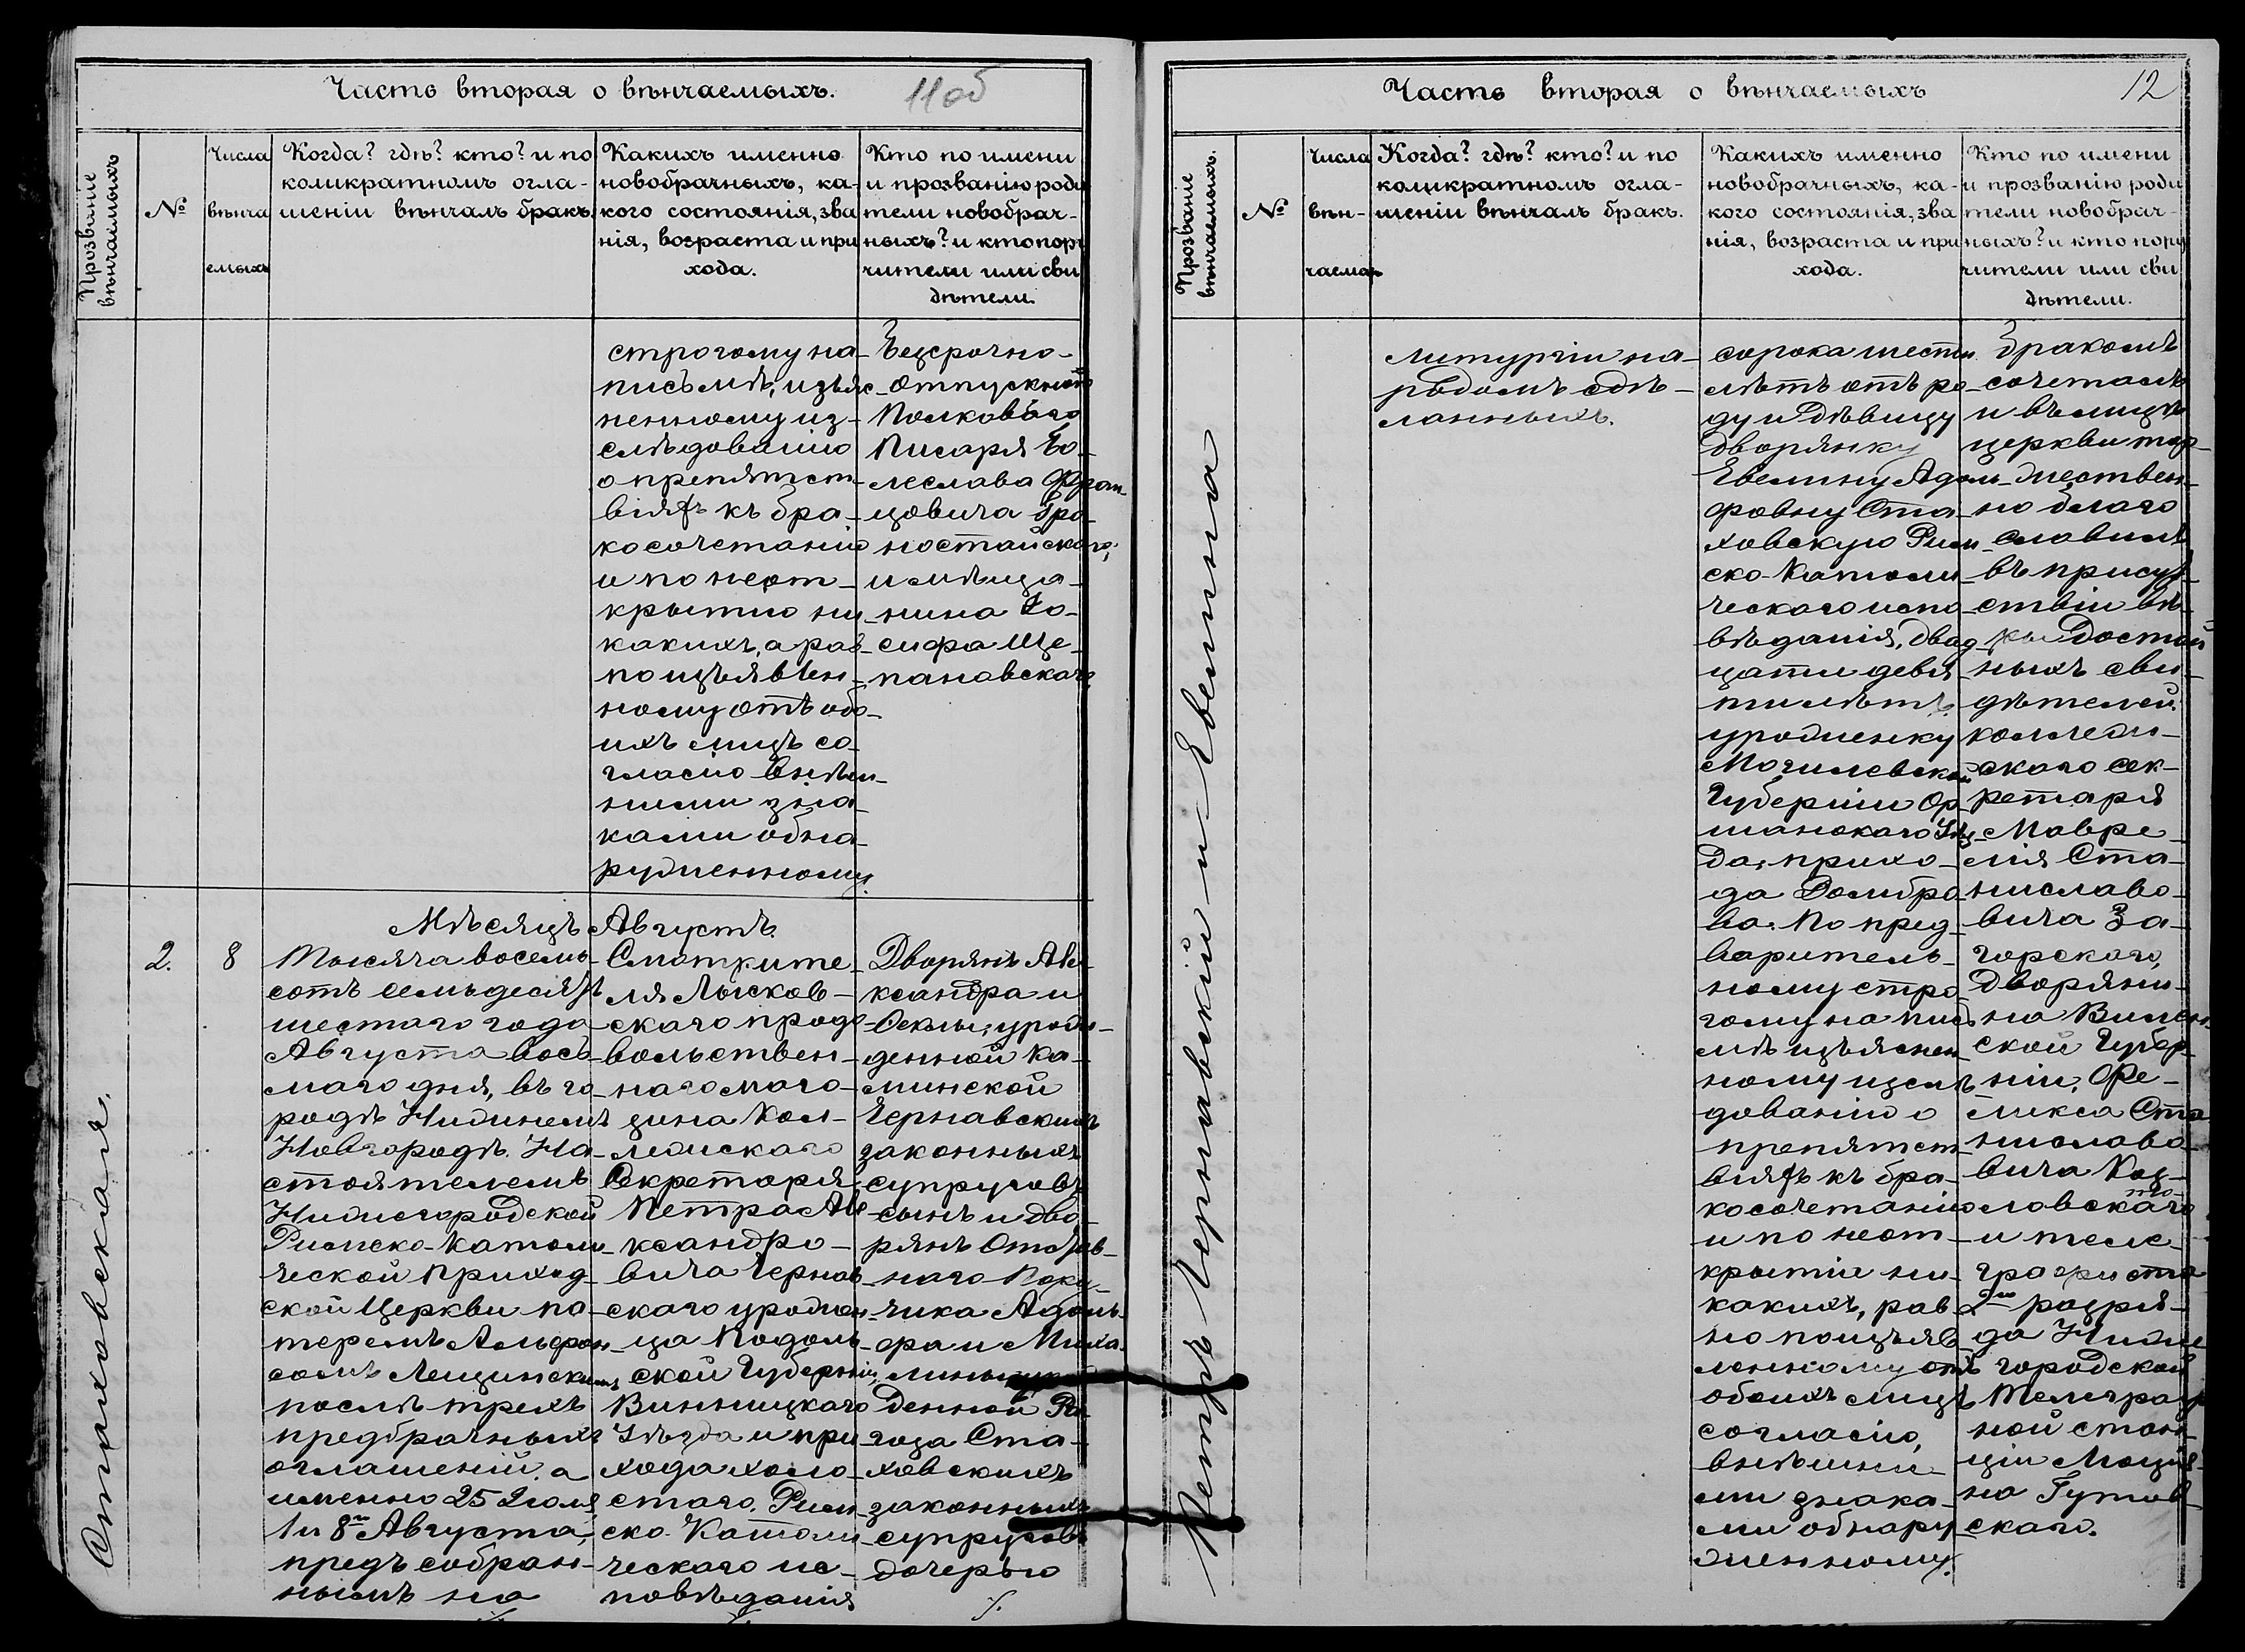 Часть вторая о вѣнчаемыхъ.
11об
Прозваніе
вѣнчаемыхъ
№
Числа
вѣнча
емыхъ
Когда? гдѣ? кто? и по
коликратномъ огла-
шеніи вѣнчалъ бракъ.
Какихъ именно
новобрачныхъ, ка-
кого состоянія, зва
нія, возраста и при
хода.
Кто по имени
и прозванію роди
тели новобрач-
ныхъ? и кто пору
чители или сви
дѣтели.
строгому на-
письмѣ, изъяс-
ненному из-
слѣдованію
о препятст-
віяхъ къ бра-
косочетанію
и по неот-
крытію ни-
какихъ, а рав-
по изъявлен-
ному отъ обо-
ихъ лицъ со
гласію внѣш-
ними зна-
ками обна
руженному.
Безсрочно-
отпускного
Полковаго
Писаря Бо-
леслава Фран-
цовича Бро-
ностайскаго,
и мѣща-
нина Іо-
сифа Ще-
пановскаго,
Мѣсяцъ Августъ.
Стаховская.
2.
8
Тысяча восемь-
сотъ семьдесятъ
шестаго года
Августа вось-
маго дня, въ го-
родѣ Нижнемъ
Новгородѣ. На-
стоятелемъ
Нижегородской
Римско-Католи-
ческой приход-
ской Церкви па-
теромъ Альфон-
сомъ Лещинскимъ
послѣ трехъ
предбрачныхъ
оглашеній, а
именно 25 Іюля,
1 и 8го Августа,
предъ собран-
нымъ на
Смотрите-
ля Лысков-
скаго продо-
вольствен-
наго мага-
зина Кол-
лежскаго
Секретаря
Петра Але-
ксандро-
вича Чернав-
скаго урожен-
ца Подоль-
ской Губерніи,
Винницкаго
Уѣзда и при
хода холо-
стаго, Рим
ско-Католи
ческаго ис-
повѣданія
Дворянъ Але-
ксандра и
Феклы, урож-
денной Ка-
минской
Чернавскихъ
законныхъ
супруговъ
сынъ и дво-
рянъ Отстав-
наго Пору-
чика Адоль-
фа и Миха-
лины
денной Ро
гоза Ста-
ховскихъ
законныхъ
супруговъ
дочерью
Часть вторая о вѣнчаемыхъ
12
Прозваніе
вѣнчаемыхъ.
№
Числа
вѣн-
чаемы
Когда? гдѣ? кто? и по
коликратномъ огла-
шеніи вѣнчалъ бракъ.
Какихъ именно
новобрачныхъ, ка-
кого состоянія, зва
нія, возраста и при
хода.
Кто по имени
и прозванію роди
тели новобрач-
ныхъ? и кто пору
чители или сви
дѣтели.
Петръ Чернавскій и Евелина
литургіи на-
родомъ сдѣ-
ланныхъ.
сорока шести
лѣтъ отъ ро-
ду и дѣвицу
дворянку
Евелину Адоль-
фовну Ста-
ховскую Рим-
ско-Католи-
ческаго испо-
вѣданія, двад-
цати девя
ти лѣтъ
уроженку
Могилевской
Губерніи Ор-
шанскаго Уѣз-
да, прихо-
да Домбро
ва. По пред-
варитель-
ному стро
гому на пись
мѣ изъяснен
ному изслѣ
дованію о
препятст
віяхъ къ бра-
косочетанію
и по неот-
крытіи ни-
какихъ, рав-
но по изъяв-
ленному отъ
обоихъ лицъ
согласію,
внѣшни-
ми знака-
ми обнару
женному.
бракомъ
сочеталъ
и въ лицѣ
церкви тор-
жествен-
но благо
словилъ
въ присут-
ствіи вѣ-
ры достой
ныхъ сви-
дѣтелей:
коллеж-
скаго Сек-
ретаря
Мавре-
лія Ста-
ниславо-
вича За-
горскаго,
Дворяни-
на Вилен-
ской Губер-
ніи, Фе-
ликса Ста
ниславо-
вича Коз-
ловскаго
и теле-
графиста
2го разря-
да Ниже
городской
Телеграф
ной стан-
ціи Моце
на Гутов-
скаго.